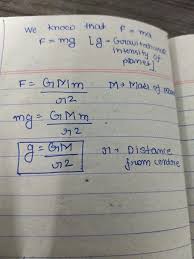 We know that F = ma
F = mg [g → Gravitational
intensity of
planet]
F = GMm / r2
M → Mass of
mg = GMm / r2
g = GM / r2
r → Distance
from centre